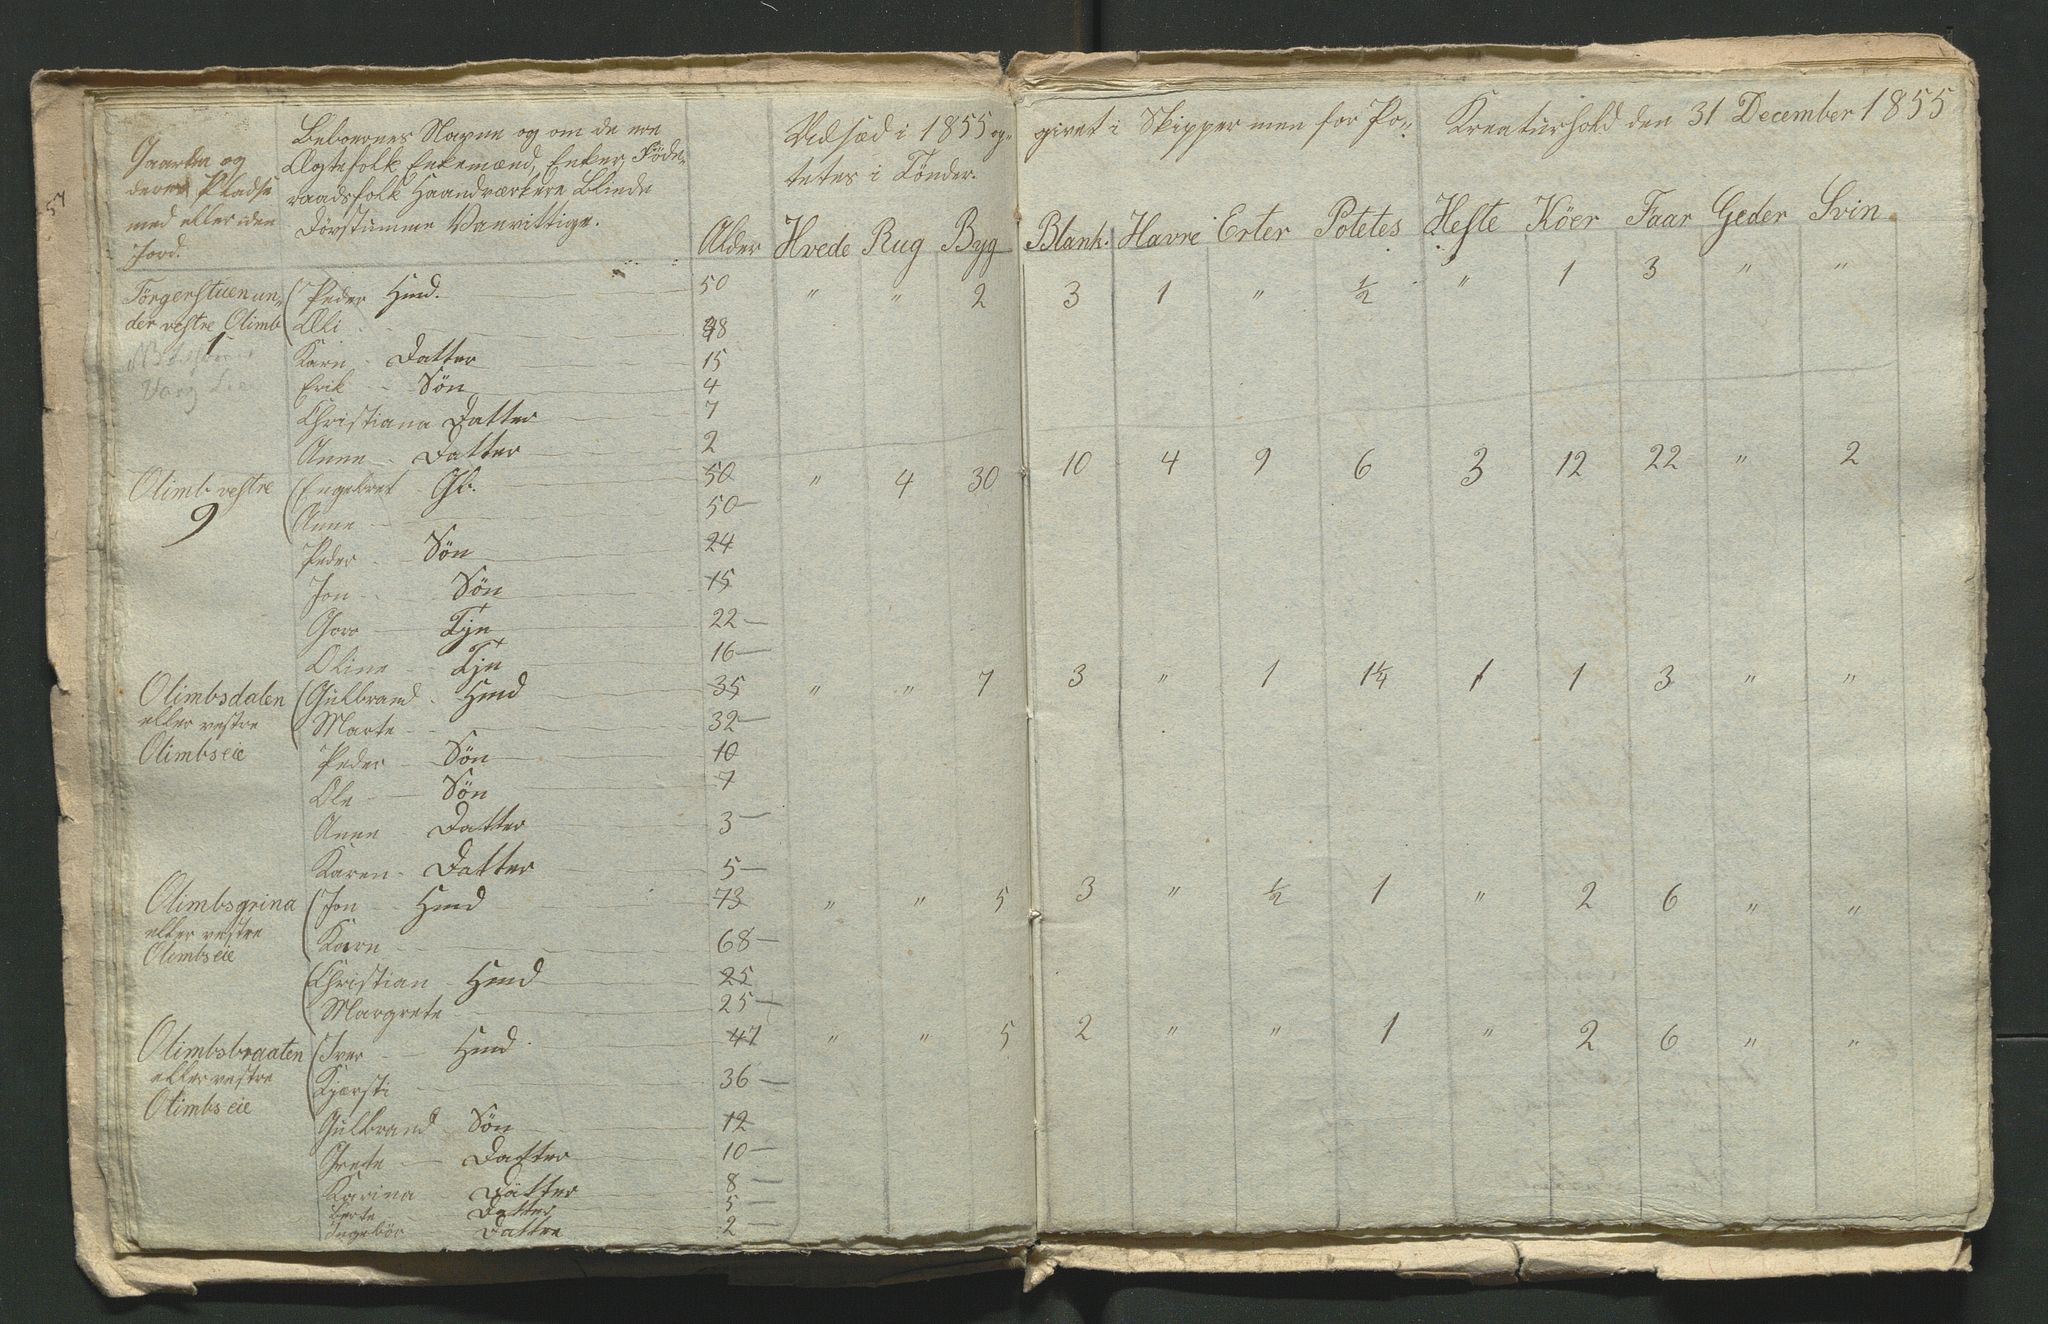 Gaarden og
deres Pladse
med eller uden
Jord.
Beboernes Navne og om de ere
Ægtefolk Enkemænd, Enker, Føde-
raadsfolk Haandværkere Blinde
Døvstumme Vanvittige.
Alder
Udsæd i 1855 op- givet i Skipper men for Po-
tetes i Tønder.
Kreaturhold den 31 December 1855
Hvede Rug Byg Blank. Havre Erter Potetes Heste Köer Faar Geder Svin
Törgerstuen un- Peder Hmd. 50 " " 2 3 1 " ½ " 1 3 " "
der vestre Olimb Oli 48
1
Karn Datter 15
Erik Sön 4
Christiana Datter 7
Anne Datter 2
Olimb vestre Engebret Gb. 50 " 4 30 10 4 9 6 3 12 22 " 2
9 Anne 50
Peder Sön 24
Jon Sön 15
Goro Tjn 22
Oline Tjn 16
Olimbsdalen Gulbrand Hmd 35 " " 7 3 " 1 1¼ 1 1 3 " "
eller vestre Marte 32
Olimbseie Peder Sön 10
Ole Sön 7
Anne Datter 3
Karen Datter 5
Olimbsgrina Jon Hmd 73 " " 5 3 " ½ 1 " 2 6 " "
eller vestre Karn 68
Olimbseie Christian Hmd 25
Margrete 25
Olimbsbraaten Iver Hmd 47 " " 5 2 " " 1 " 2 6 " "
eller vestre Kjersti 36
Olimbseie Gulbrand Sön 12
Grete Datter 10
Karina Datter 8
Berte Datter 5
Ingebör Dattre 2
57